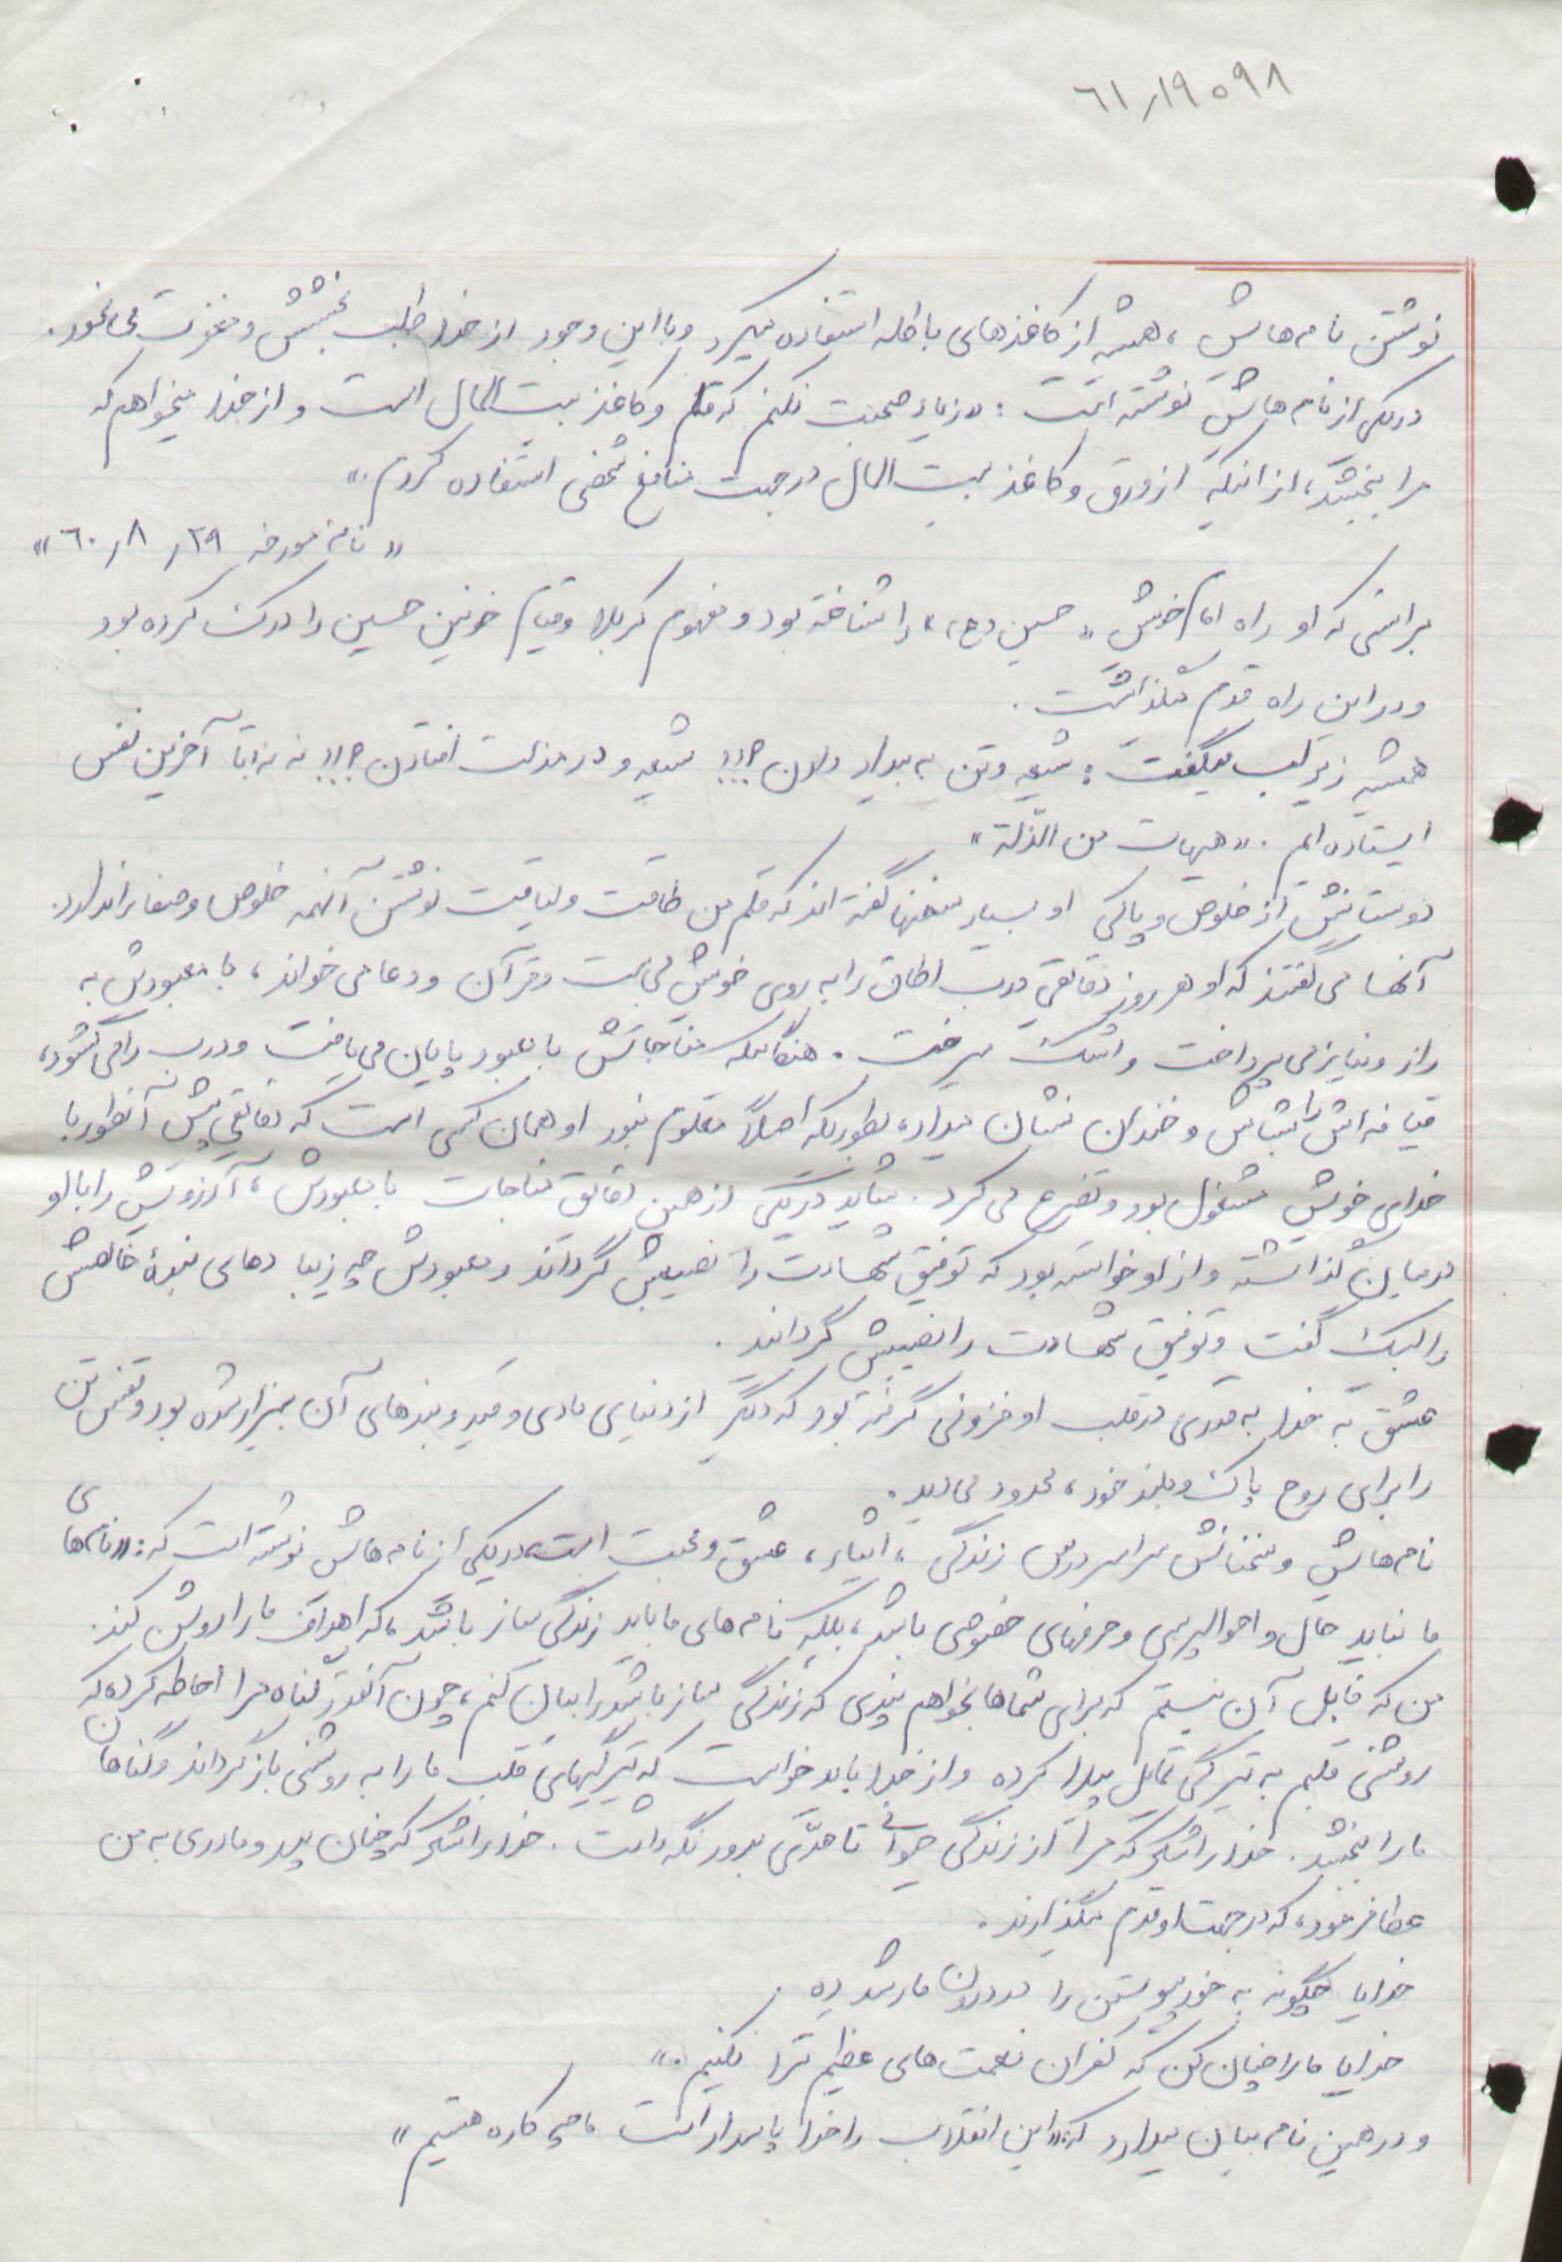 ۶۱/۱۹۰۹۸
نوشتن نامه‌هایش، همیشه از کاغذهای باطله استفاده میکرد و با این وجود از خدا طلب بخشش و مغفرت می‌نمود.
در یکی از نامه‌هایش نوشته است: «زیاد صحبت نکنم که قلم و کاغذ بیت‌المال است و از خدا میخواهم که
مرا ببخشد، از اینکه از ورق و کاغذ بیت‌المال در جهت منافع شخصی استفاده کردم.»
«نامه مورخه ۶۰/۸/۲۹»
براستی که او راه امام خویش «حسین (ع)» را شناخته بود و مفهوم کربلا و قیام خونین حسین را درک کرده بود
و در این راه قدم میگذاشت.
همیشه زیر لب میگفت: شیعه و تن به بیداد دادن؟!! شیعه و در مذلت افتادن؟!! نه نه تا آخرین نفس
ایستاده‌ایم. «هیهات من الذّلة»
دوستانش از خلوص و پاکی او بسیار سخنها گفته‌اند که قلم من طاقت و لیاقت نوشتن آنهمه خلوص و صفا را ندارد.
آنها می‌گفتند که او هر روز دقایقی درب اطاق را به روی خویش می‌بست و قرآن و دعا می‌خواند، با معبودش به
راز و نیاز می‌پرداخت و اشک میریخت. هنگامیکه مناجاتش با معبود پایان می‌یافت و درب را می‌گشود،
قیافه‌اش را بشاش و خندان نشان میداد، بطوریکه اصلاً معلوم نبود او همان کسی است که دقایقی پیش آنطور با
خدای خویش مشغول بود و تضرع می‌کرد. شاید در یکی از همین دقایق مناجات با معبودش، آرزویش را با او
در میان گذاشته و از او خواسته بود که توفیق شهادت را نصیبش گرداند و معبودش چه زیبا دعای بندهٔ خالصش
را لبیک گفت و توفیق شهادت را نصیبش گردانید.
عشق به خدا به قدری در قلب او فزونی گرفته بود که دیگر از دنیای مادی و قید و بندهای آن بیزار شده بود و قفس تن
را برای روح پاک و بلند خود، محدود می‌دید.
نامه‌هایش و سخنانش سراسر درس زندگی، ایثار، عشق و محبت است، در یکی از نامه‌هایش نوشته است که: «نامه‌های
ما نباید حال و احوالپرسی و حرفهای خصوصی باشد، بلکه نامه‌های ما باید زندگی ساز باشد، که اهداف ما را روشن کند.
من که قابل آن نیستم که برای شماها بخواهم پندی که زندگی ساز باشد را بیان کنم، چون آنقدر گناه مرا احاطه کرده که
روشنی قلبم به تیرگی تمایل پیدا کرده و از خدا باید خواست که تیرگیهای قلب ما را به روشنی باز گرداند و گناهان
ما را ببخشد. خدا را شکر که مرا از زندگی حیوانی تا حدّی بدور نگه داشت. خدا را شکر که چنان پدر و مادری به من
عطا فرمود، که در جهت او قدم میگذارند.
خدایا چگونه به خود پیوستن را در درون ما رشد ده.
خدایا ما را چنان کن که کفران نعمت‌های عظیم ترا نکنیم.»
و در همین نامه بیان میدارد که: «این انقلاب را خدا پاسدار است ما چه کاره هستیم»